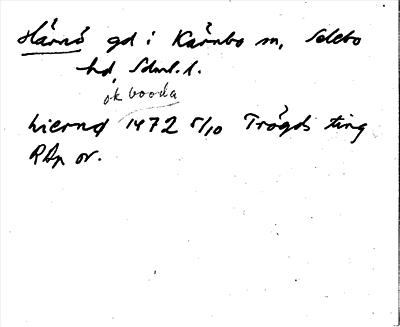 Hårnö gd i Kärnbo sn, Selebo
hd, Sdml. l.
ok booda
hiernö 1472 5/10 Trögds ting
RAp or.